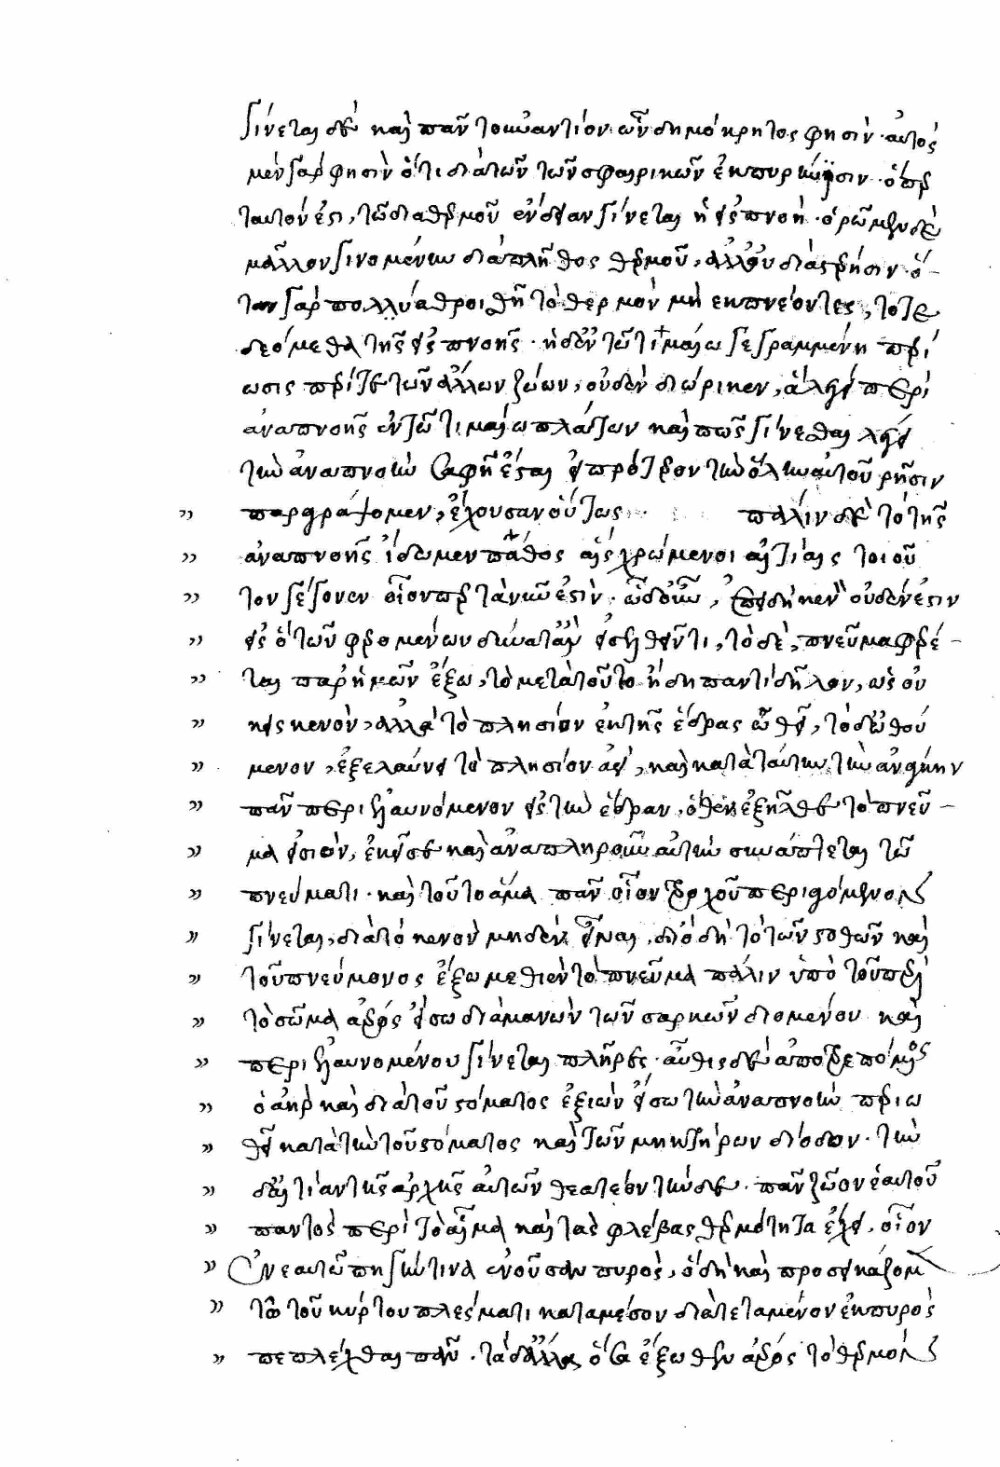 γίνεται δὲ καὶ πᾶν τοὐναντίον ὧν δημόκρητος φησὶν· αὐτὸς
μὲν γάρ φησιν ὅτι διὰ τῶν τῶν σφαιρικῶν ἐκπυρήνισιν· ὅπερ
ταυτόν ἐστι, τῷ διὰ θερμοῦ ἔνδειαν γίνεται ἡ εἰσπνοή· ὁρῶμεν δὲ
μᾶλλον γινομένην διὰ πλῆθος θερμοῦ, ἀλλ' οὐ διὰ στέρησιν· ὅ-
ταν γὰρ πολλὺ ἀθροισθῇ τὸ θερμὸν μὴ ἐκπνέοντες, τότε
δεόμεθα τῆς εἰσπνοῆς· ἡ δ' ἐν τῷ τιμαίῳ γεγραμμένη περί
ωσις περί τε τῶν ἄλλων ζώων, οὐδὲν διώρικεν, ἀλλ' περὶ
ἀναπνοῆς ἐν τῷ τιμαίῳ πλάτων καὶ πῶς γίνεσθαι λέγει
τὴν ἀναπνοὴν σαφὲς ἔσται εἰ πρότερον τὴν ὅλην αὐτοῦ ῥῆσιν
παραγράψομεν, ἔχουσαν οὕτως· πάλιν δὲ τὸ τῆς
ἀναπνοῆς ἴδωμεν πάθος αἷς χρώμενοι αἰτίαις τοιοῦ
τον γέγονεν οἷον περ τανῦν ἐστίν· ὧδ' οὖν, ἐπειδὴ κενὸν οὐδέν ἐστιν
εἰς ὃ τῶν φερομένων δύναιτ' ἂν εἰσελθεῖν τι, τὸ δὲ, πνεῦμα φέρε-
ται παρ' ἡμῶν ἔξω, τὸ μετὰ τοῦτο ἤδη παντὶ δῆλον, ὡς οὐ
κεις κενὸν, ἀλλὰ τὸ πλησίον ἐκ τῆς ἕδρας ὠθεῖ, τὸ δ' ὠθού
μενον, ἐξελαύνει τὸ πλησίον ἀεί, καὶ κατὰ ταύτην τὴν ἀνάγκην
πᾶν περιελαυνόμενον εἰς τὴν ἕδραν, ὅθεν ἐξῆλθε τὸ πνεῦ-
μα εἰσιὸν, ἐκεῖσε καὶ ἀναπληροῦν αὐτὴν συνάπτεται τῷ
πνεύματι· καὶ τοῦτο ἅμα πᾶν οἷον τροχοῦ περιαγομένου
γίνεται, διὰ τὸ κενὸν μηδὲν εἶναι, διὸ δὴ τὸ τῶν στηθῶν καὶ
τοῦ πνεύμονος ἔξω μεθιὲν τὸ πνεῦμα πάλιν ὑπὸ τοῦ περὶ
τὸ σῶμα ἀέρος εἴσω διὰ μανῶν τῶν σαρκῶν διομένου καὶ
περιελαυνομένου γίνεται πλῆρες· αὖθις δὲ ἀποτρεπόμενος
ὁ ἀὴρ καὶ διὰ τοῦ στόματος ἐξιὼν εἴσω τὴν ἀναπνοὴν περιω
θεῖ κατὰ τὴν τοῦ στόματος καὶ τῶν μηκτήρων δίοδον· τὴν
δ' αἰτίαν τῆς ἀρχῆς αὐτῶν θεατέον τήνδε· πᾶν ζῶον ἑαυτοῦ
παντὸς περὶ τὸ αἷμα καὶ τὰς φλέβας θερμότητα ἔχει, οἷον
ἐν ἑαυτῷ πηγήν τινα ἐνοῦσαν πυρὸς, ὃ δὴ καὶ προσεικάζομεν
τῷ τοῦ κύρτου πλέγματι κατὰ μέσον διατεταμένον ἐκ πυρὸς
πεπλέχθαι πᾶν· τὰ δ' ἄλλα ὅσα ἔξωθεν ἀέρος τὸ θερμὸν